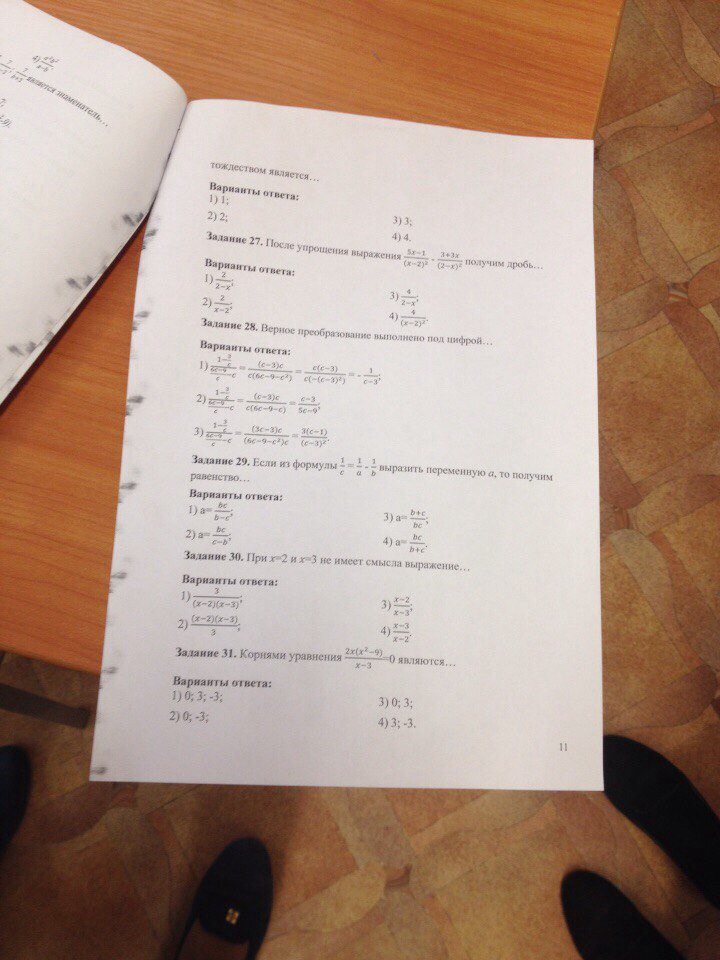 4) a²b²/x−b
7/b+5 является знаменатель…
тождеством является…
Варианты ответа:
1) 1;
2) 2;
3) 3;
4) 4.
Задание 27. После упрощения выражения (5x−1)/(x−2)² - (3+3x)/(2−x)² получим дробь…
Варианты ответа:
1) 2/(2−x);
2) 2/(x−2);
3) 4/(2−x);
4) 4/(x−2)².
Задание 28. Верное преобразование выполнено под цифрой…
Варианты ответа:
1) (1−3/c)/((6c−9)/c−c) = (c−3)c/c(6c−9−c²) = c(c−3)/c(−(c−3)²) = - 1/(c−3);
2) (1−3/c)/((6c−9)/c−c) = (c−3)c/c(6c−9−c) = (c−3)/(5c−9);
3) (1−3/c)/((6c−9)/c−c) = (3c−3)c/(6c−9−c²)c = 3(c−1)/(c−3)².
Задание 29. Если из формулы 1/c = 1/a - 1/b выразить переменную a, то получим
равенство…
Варианты ответа:
1) a= bc/(b−c);
2) a= bc/(c−b);
3) a= (b+c)/bc;
4) a= bc/(b+c).
Задание 30. При x=2 и x=3 не имеет смысла выражение…
Варианты ответа:
1) 3/(x−2)(x−3);
2) (x−2)(x−3)/3;
3) (x−2)/(x−3);
4) (x−3)/(x−2).
Задание 31. Корнями уравнения 2x(x²−9)/(x−3)=0 являются…
Варианты ответа:
1) 0; 3; -3;
2) 0; -3;
3) 0; 3;
4) 3; -3.
11